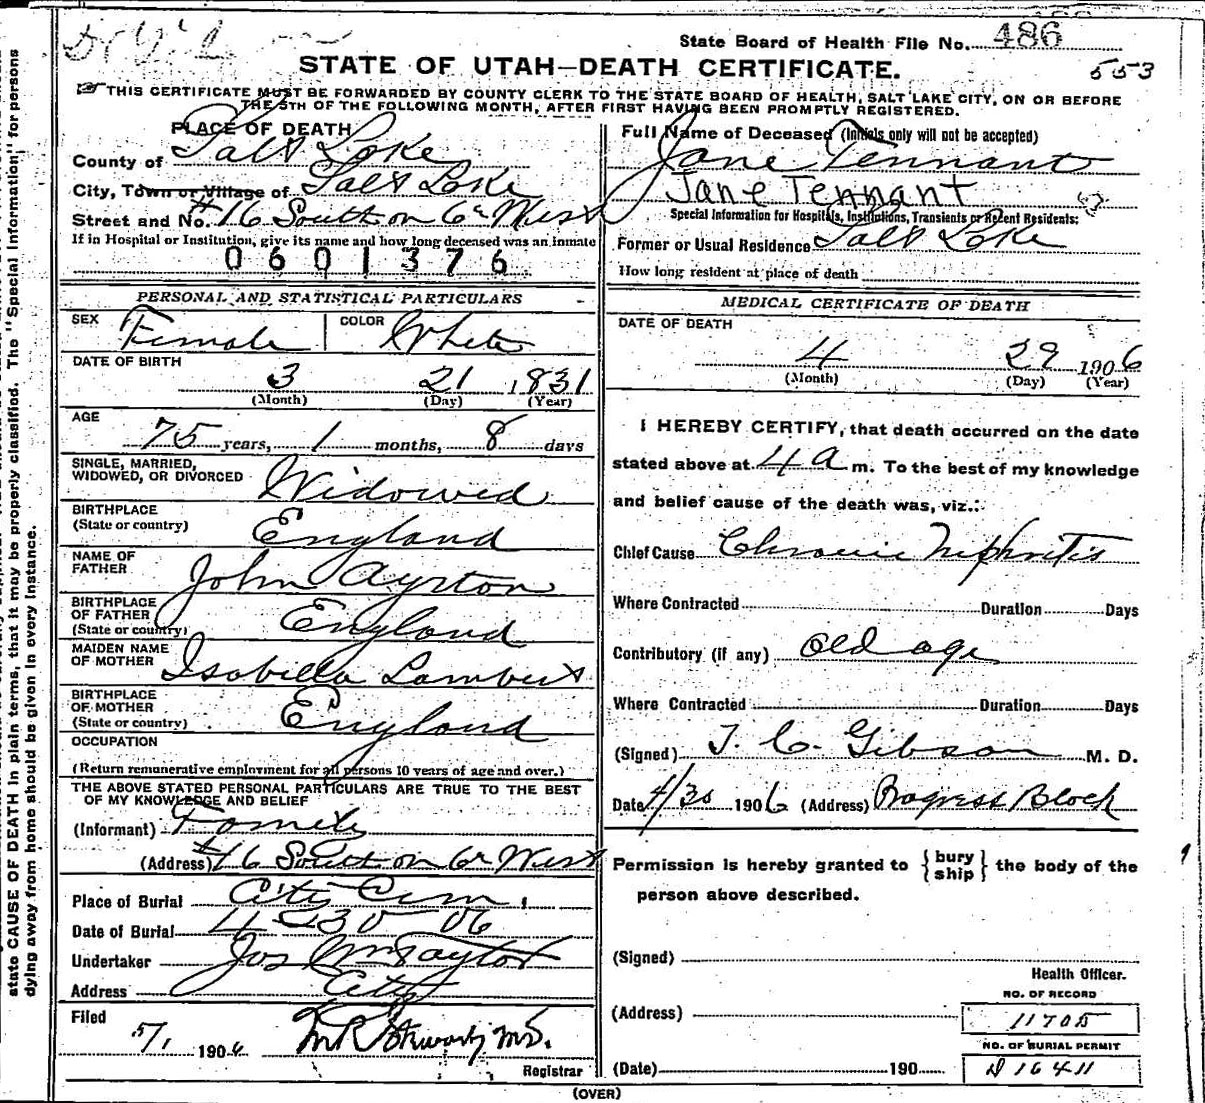 State Board of Health File No. 486
STATE OF UTAH—DEATH CERTIFICATE.
553
THIS CERTIFICATE MUST BE FORWARDED BY COUNTY CLERK TO THE STATE BOARD OF HEALTH, SALT LAKE CITY, ON OR BEFORE
THE 5TH OF THE FOLLOWING MONTH, AFTER FIRST HAVING BEEN PROMPTLY REGISTERED.
PLACE OF DEATH
County of Salt Lake
City, Town or Village of Salt Lake
Street and No. #16 South on 6th West
If in Hospital or Institution, give its name and how long deceased was an inmate
0601376
PERSONAL AND STATISTICAL PARTICULARS
SEX Female COLOR White
DATE OF BIRTH
3 21 1831
(Month) (Day) (Year)
AGE
75 years, 1 months, 8 days
SINGLE, MARRIED,
WIDOWED, OR DIVORCED Widowed
BIRTHPLACE
(State or country) England
NAME OF
FATHER John Ayrton
BIRTHPLACE
OF FATHER
(State or country) England
MAIDEN NAME
OF MOTHER Isabella Lambert
BIRTHPLACE
OF MOTHER
(State or country) England
OCCUPATION
(Return remunerative employment for all persons 10 years of age and over.)
THE ABOVE STATED PERSONAL PARTICULARS ARE TRUE TO THE BEST
OF MY KNOWLEDGE AND BELIEF
(Informant) Family
(Address) #16 South on 6th West
Place of Burial City Cem.
Date of Burial 4-30-06
Undertaker Jos Wm Taylor
Address City
Filed
5/1 1906 M.D.
Registrar
Full Name of Deceased (Initials only will not be accepted)
Jane Tennant
Jane Tennant
Special Information for Hospitals, Institutions, Transients or Recent Residents:
Former or Usual Residence Salt Lake
How long resident at place of death
MEDICAL CERTIFICATE OF DEATH
DATE OF DEATH
4 29 1906
(Month) (Day) (Year)
I HEREBY CERTIFY, that death occurred on the date
stated above at 4 a m. To the best of my knowledge
and belief cause of the death was, viz.:
Chief Cause Chronic Nephritis
Where Contracted Duration Days
Contributory (if any) old age
Where Contracted Duration Days
(Signed) J. C. Gibson M. D.
Date 4/30 1906 (Address) Progress Block
Permission is hereby granted to {bury ship} the body of the
person above described.
(Signed)
Health Officer.
NO. OF RECORD
(Address) 11705
NO. OF BURIAL PERMIT
(Date) 190 D 16411
(OVER)
state CAUSE OF DEATH in plain terms, that it may be properly classified. The "Special Information" for persons
dying away from home should be given in every instance.